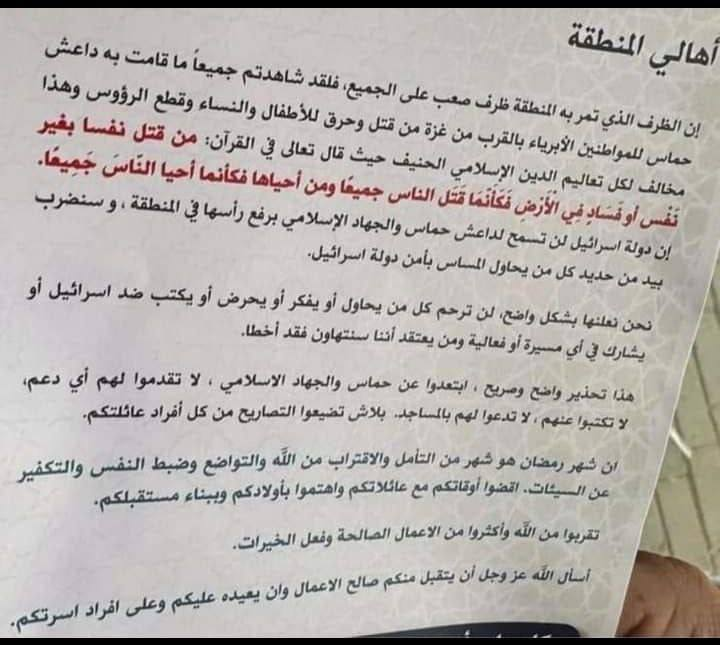 أهالي المنطقة
إن الظرف الذي تمر به المنطقة ظرف صعب على الجميع، فلقد شاهدتم جميعاً ما قامت به داعش
حماس للمواطنين الأبرياء بالقرب من غزة من قتل وحرق للأطفال والنساء وقطع الرؤوس وهذا
مخالف لكل تعاليم الدين الإسلامي الحنيف حيث قال تعالى في القرآن: من قتل نفسا بغير
نَفْسٍ أو فَسَادٍ فِي الْأَرْضِ فَكَأَنَّمَا قَتَل الناس جميعًا ومن أحياها فكأنما أحيا النَّاسَ جَمِيعًا.
إن دولة اسرائيل لن تسمح لداعش حماس والجهاد الإسلامي برفع رأسها في المنطقة ، و سنضرب
بيد من حديد كل من يحاول المساس بأمن دولة اسرائيل.
نحن نعلنها بشكل واضح، لن ترحم كل من يحاول أو يفكر أو يحرض أو يكتب ضد اسرائيل أو
يشارك في أي مسيرة أو فعالية ومن يعتقد أننا سنتهاون فقد أخطا.
هذا تحذير واضح وصريح ، ابتعدوا عن حماس والجهاد الاسلامي ، لا تقدموا لهم أي دعم،
لا تكتبوا عنهم ، لا تدعوا لهم بالمساجد. بلاش تضيعوا التصاريح من كل أفراد عائلتكم.
ان شهر رمضان هو شهر من التأمل والاقتراب من اللَّه والتواضع وضبط النفس والتكفير
عن السيئات. اقضوا أوقاتكم مع عائلاتكم واهتموا بأولادكم وببناء مستقبلكم.
تقربوا من اللَّه وأكثروا من الاعمال الصالحة وفعل الخيرات.
أسأل اللَّه عز وجل أن يتقبل منكم صالح الاعمال وان يعيده عليكم وعلى افراد اسرتكم.